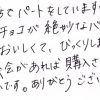 ちでパートをしています
チョコが絶妙なバ
おいしくて、びっくりしま
会があれば購入さ
です。ありがとうござ